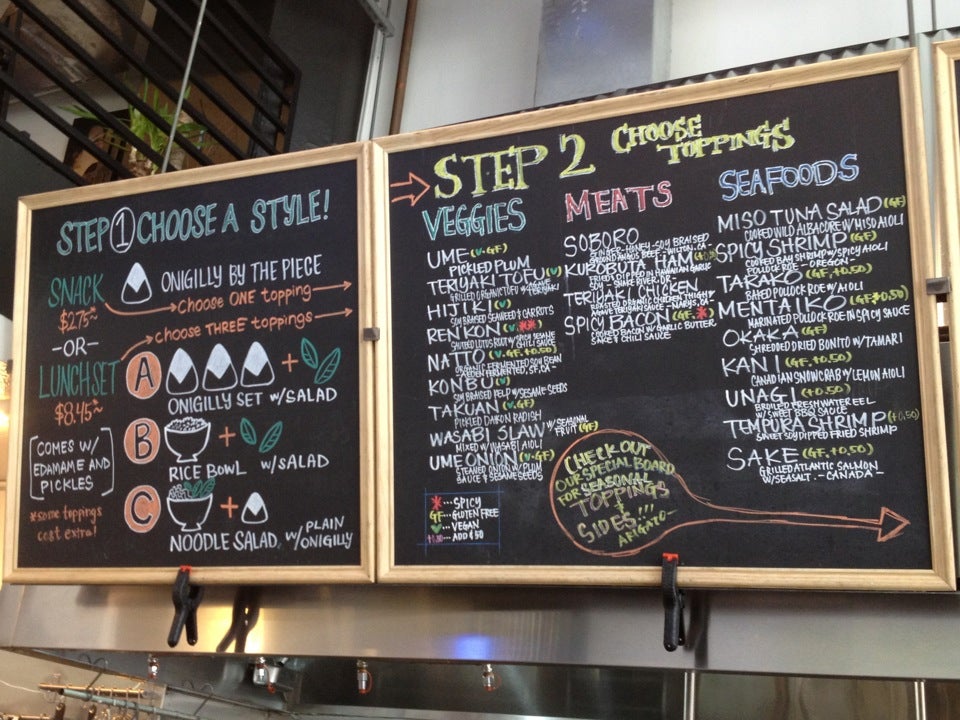 STEP 1 CHOOSE A STYLE!
SNACK
$2.75
ONIGILLY BY THE PIECE
Choose ONE topping
-OR-
choose THREE toppings
LUNCH SET
$8.45
A
+
ONIGILLY SET W/SALAD
B
+
RICE BOWL W/SALAD
C
+
NOODLE SALAD W/ PLAIN
ONIGILLY
[COMES W/
EDAMAME AND
PICKLES]
*some toppings
cost extra!
STEP 2 CHOOSE
TOPPINGS
VEGGIES
UME (V·GF)
PICKLED PLUM
TERIYAKI TOFU (V)
GRILLED ORGANIC TOFU W/
HIJIKI (V)
SOY BRAISED SEAWEED & CARROTS
RENKON (V·**)
SAUTEED LOTUS ROOT W/ SPICY SESAME
& CHILI SAUCE
NATTO (V·GF,+0.50)
ORGANIC FERMENTED SOY BEAN
KONBU (V)
SOY BRAISED KELP W/ SESAME SEEDS
TAKUAN (V·GF)
PICKLED DAIKON RADISH
WASABI SLAW W/ SEASONAL
FRUIT (GF)
MIXED W/ WASABI AIOLI
UME ONION (V·GF)
STEAMED ONION W/ PLUM
SAUCE & SESAME SEEDS
*...SPICY
GF...GLUTEN FREE
V...VEGAN
+0.50...ADD $.50
MEATS
SOBORO
GINGER-HONEY-SOY BRAISED
GROUND ANGUS BEEF -WILTON, CA-
KUROBUTA HAM
DIPPED IN HAWAIIAN GARLIC
SOY -SNAKE RIVER, OR-
TERIYAKI CHICKEN
ROASTED ORGANIC CHICKEN THIGH W/
AGAVE TERIYAKI SAUCE -MARYS, CA-
SPICY BACON (GF,*)
COOKED BACON W/ GARLIC BUTTER
SAKE & CHILI SAUCE
CHECK OUT
OUR SPECIAL BOARD
FOR SEASONAL
TOPPINGS
&
SIDES!!!
-ARIGATO-
SEAFOODS
MISO TUNA SALAD (GF)
COOKED WILD ALBACORE W/ MISO AIOLI
SPICY SHRIMP (GF)
COOKED BAY SHRIMP W/ SPICY AIOLI
POLLOCK ROE -OREGON-
TAKAKO (GF,+0.50)
BAKED POLLOCK ROE W/ AIOLI
MENTAIKO (GF*+0.50)
MARINATED POLLOCK ROE IN SPICY SAUCE
OKAKA (GF)
SHREDDED DRIED BONITO W/ TAMARI
KANI (GF,+0.50)
CANADIAN SNOW CRAB W/ LEMON AIOLI
UNAGI (+0.50)
BROILED FRESHWATER EEL
W/ SWEET BBQ SAUCE
TEMPURA SHRIMP (+0.50)
SWEET SOY DIPPED FRIED SHRIMP
SAKE (GF,+0.50)
GRILLED ATLANTIC SALMON
W/ SEASALT -CANADA-